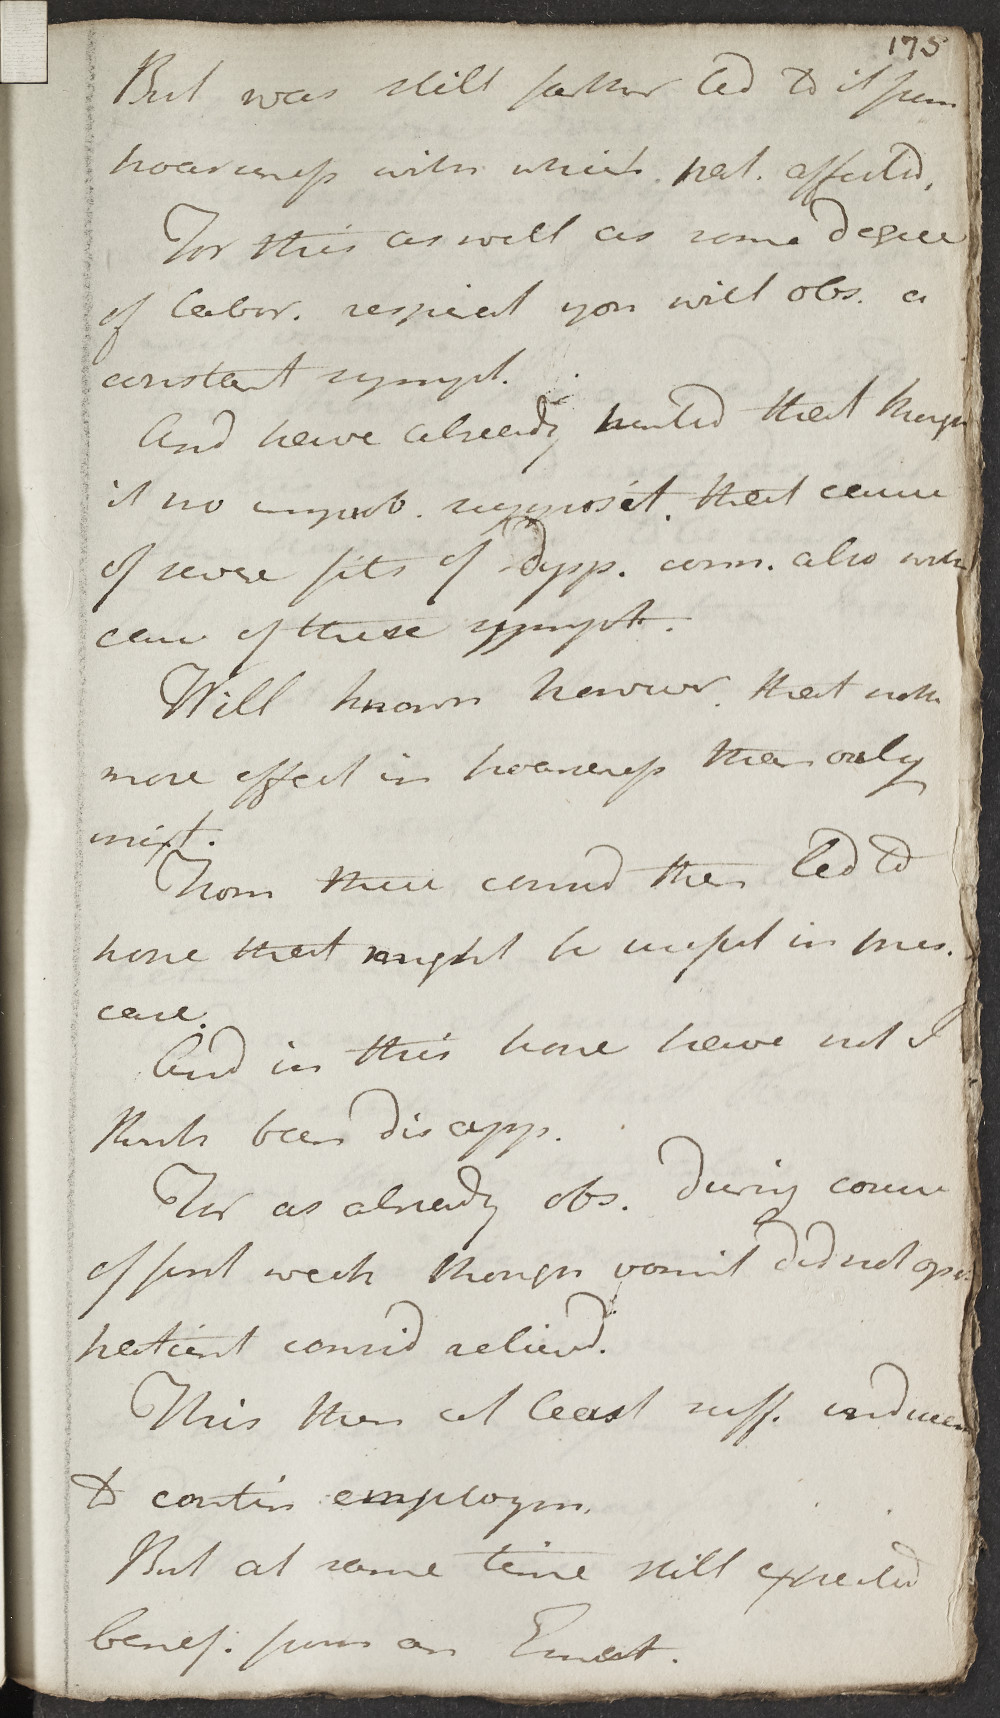 175
But was still farther led to it from
hoarseness with which pat. affected.
For this as well as some degree
of labor. respirat you will obs. a
constant sympt.
And have already hinted that though
it no improb. supposit. that cause
of severe fits of dysp. conn. also with
cause of these sympt.
Well known however. that noth
more effect in hoarseness than oily
mixt.
From these consid then led to
hope that might be useful in pres.
case.
And in this hope have not I
think been disapp.
For as already obs. During course
of first week though vomit did not oper
patient consid relievd.
This then at least suff. inducem
to contin employm.
But at same time still expected
benef. from an Emet.